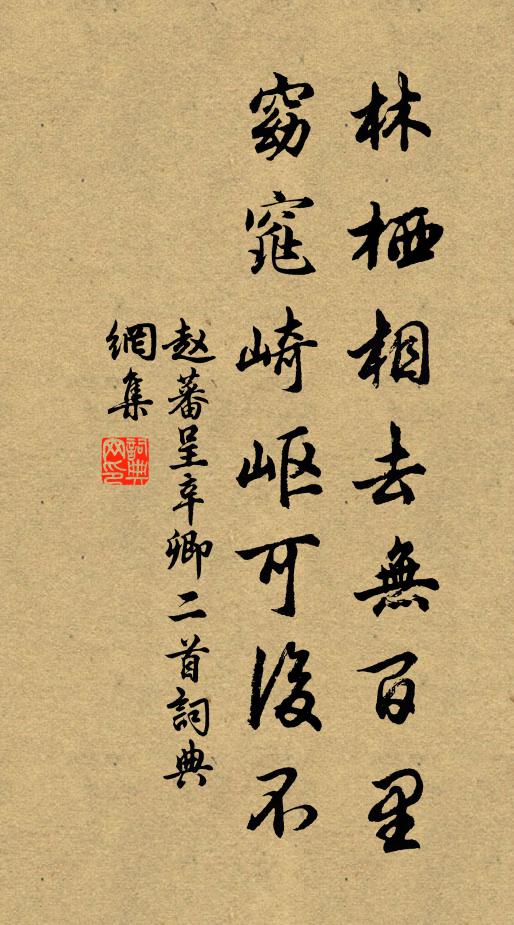 林栖相去無百里
窈窕崎岖可後不
赵蕃呈辛卿二首詞典
網集
詞典
网印